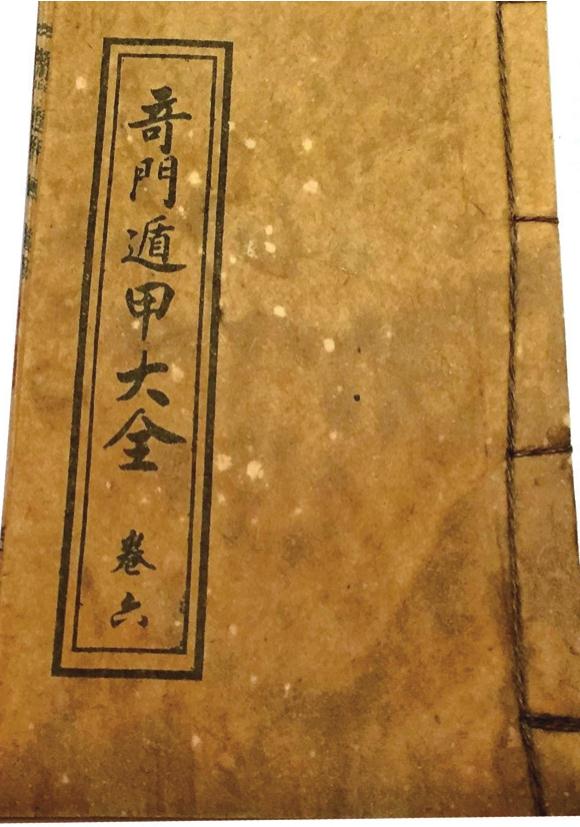 奇門遁甲大全
卷六